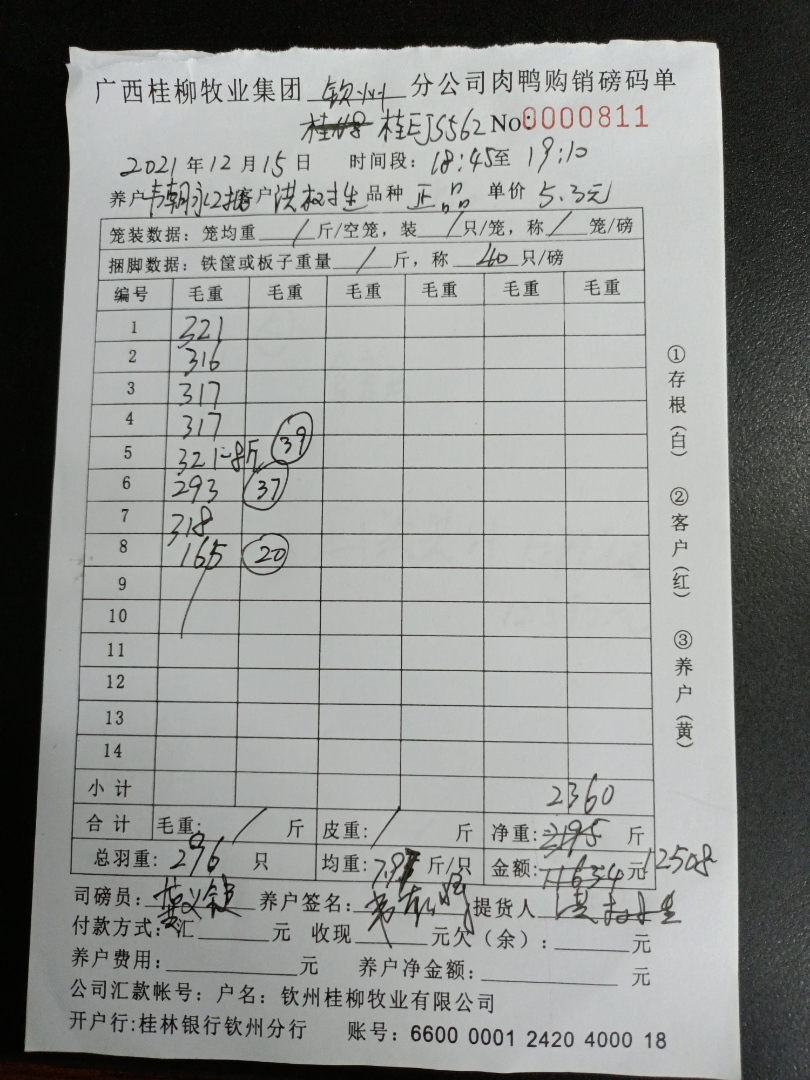 广西桂柳牧业集团 钦州 分公司肉鸭购销磅码单
桂EJS562 No:0000811
2021年12月15日 时间段:18:45至19:10
养户 韦朝永 客户 洪权生 品种 正品 单价 5.3元
笼装数据:笼均重 / 斤/空笼,装 / 只/笼,称 / 笼/磅
捆脚数据:铁筐或板子重量 / 斤,称 40 只/磅
编号 毛重 毛重 毛重 毛重 毛重 毛重
1 321
2 316
3 317
4 317
5 321-8斤 39
6 293 37
7 318
8 165 20
9
10
11
12
13
14
小计 2360
合计 毛重: / 斤 皮重: / 斤 净重: 2195 斤
总羽重: 296 只 均重: 7.97 斤/只 金额: 11634 元 12508
司磅员: 养户签名: 提货人 洪权生
付款方式:汇 元 收现 元欠(余): 元
养户费用: 元 养户净金额: 元
公司汇款帐号:户名:钦州桂柳牧业有限公司
开户行:桂林银行钦州分行 账号:6600 0001 2420 4000 18
①存根(白) ②客户(红) ③养户(黄)